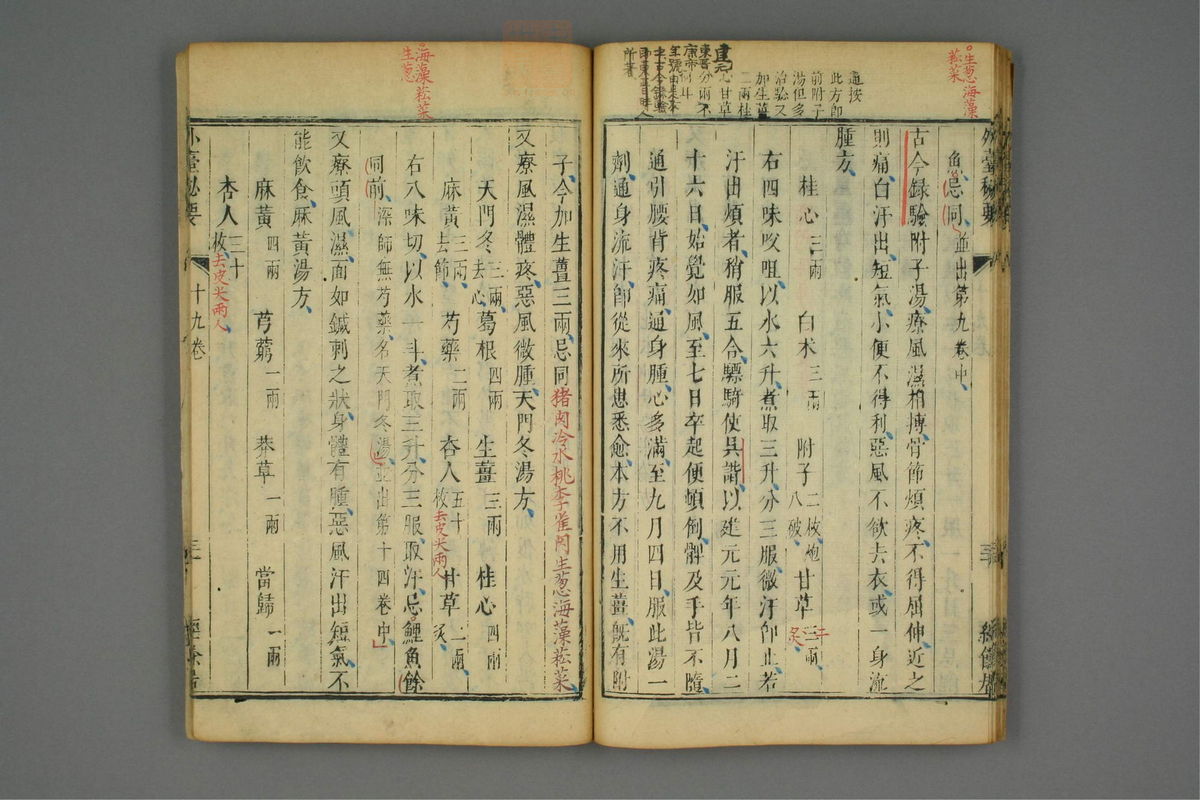 生葱海藻
菘菜
魚忌同並出第九卷中
古今録驗附子湯療風濕相搏骨節煩疼不得屈伸近之
則痛白汗出短氣小便不得利惡風不欲去衣或一身流
腫方
桂心三兩 白术三兩 附子二枚炮八破 甘草三兩炙
右四味㕮咀以水六升煮取三升分三服微汗即止若
汗出煩者稍服五合驃騎使吳諧以建元元年八月二
十六日始覺如風至七日卒起便頓倒髀及手皆不隨
通引腰背疼痛通身腫心多滿至九月四日服此湯一
劑通身流汗即從來所患悉愈本方不用生薑既有附
通按
此方即
前附子
湯但多
加生薑
二兩桂
心甘草
分兩不
建元
東晉
康帝
年號
海藻菘菜
生葱
子今加生薑三兩忌同猪肉冷水桃李雀肉生葱海藻菘菜
又療風濕體疼惡風微腫天門冬湯方
天門冬三兩去心 葛根四兩 生薑三兩 桂心四兩
麻黃三兩去節 芍藥二兩 杏人五十枚去皮尖兩人 甘草二兩炙
右八味切以水一斗煮取三升分三服取汗忌鯉魚餘
同前深師無芍藥名天門冬湯並出第十四卷中
又療頭風濕面如鍼刺之狀身體有腫惡風汗出短氣不
能飲食麻黃湯方
麻黃四兩 芎藭一兩 莽草一兩 當歸一兩
杏人三十枚去皮尖兩人
外臺秘要 十九卷